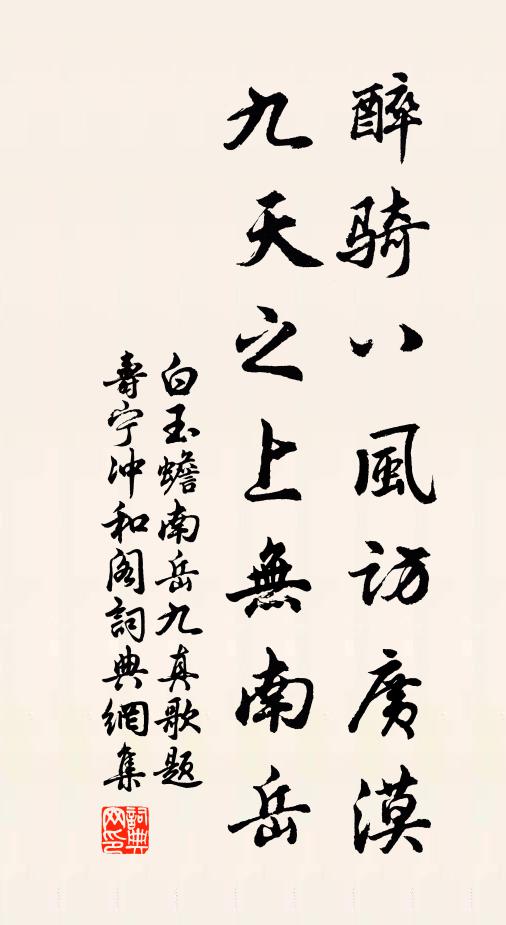 醉骑八風访廣漠
九天之上無南岳
白玉蟾南岳九真歌题
壽宁冲和阁詞典網集
詞典
网印